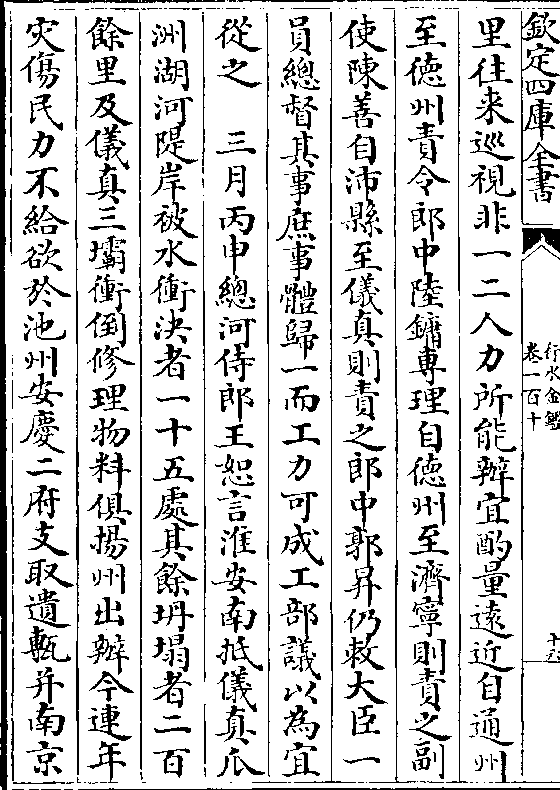 欽定四庫全書
行水金鑑
卷一百十
十六
里往来巡視非一二人力所能辦宜酌量遠近自通州
至徳州責令郎中陸鏞専理自徳州至濟寧則責之副
使陳善自沛縣至儀真則責之郎中郭昇仍敕大臣一
員總督其事庶事體歸一而工力可成工部議以為宜
從之　三月丙申總河侍郎王恕言淮安南抵儀真瓜
洲湖河隄岸被水衝決者一十五處其餘坍塌者二百
餘里及儀真三壩衝倒修理物料俱揚州出辦今連年
灾傷民力不給欲於池州安慶二府支取遺甎并南京